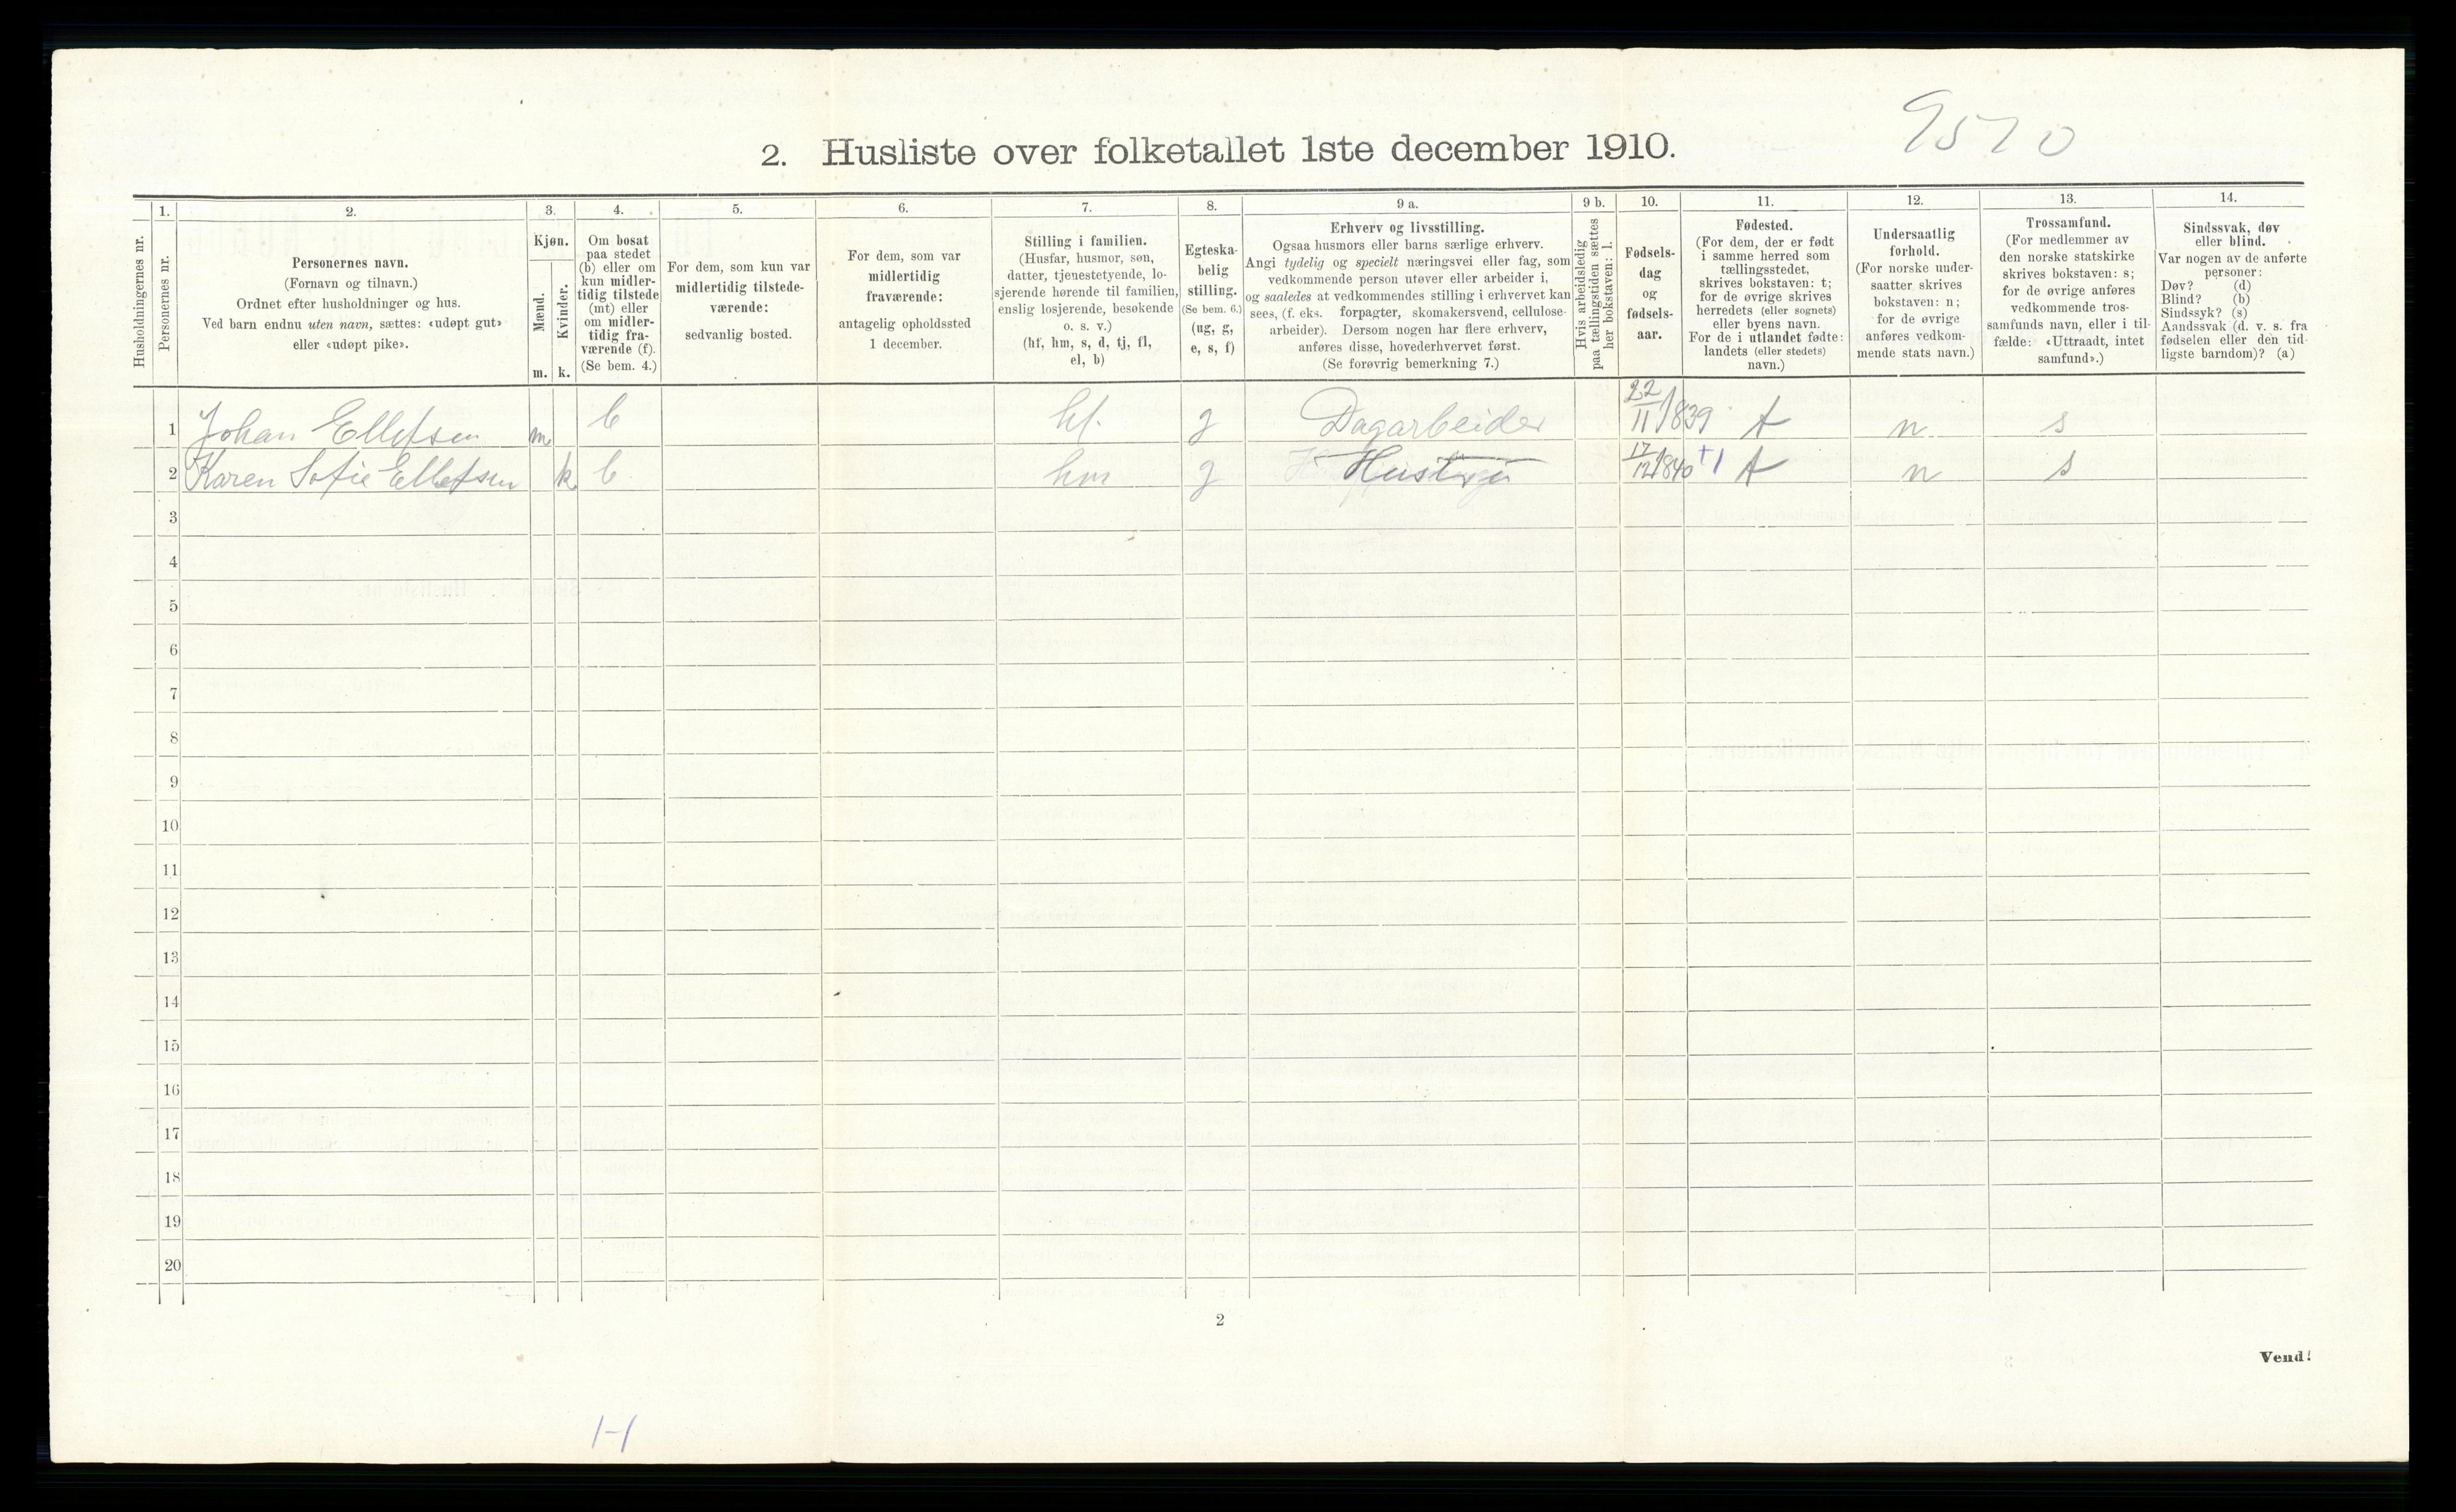 9570
2. Husliste over folketallet 1ste december 1910.
Husholdningernes nr.
1.
Personernes nr.
2.
Personernes navn.
(Fornavn og tilnavn.)
Ordnet efter husholdninger og hus.
Ved barn endnu uten navn, sættes: «udøpt gut»
eller «udøpt pike».
3.
Kjøn.
Mænd.
Kvinder.
m. k.
4.
Om bosat
paa stedet
(b) eller om
kun midler-
tidig tilstede
(mt) eller
om midler-
tidig fra-
værende (f).
(Se bem. 4.)
5.
For dem, som kun var
midlertidig tilstede-
værende:
sedvanlig bosted.
6.
For dem, som var
midlertidig
fraværende:
antagelig opholdssted
1 december.
7.
Stilling i familien.
(Husfar, husmor, søn,
datter, tjenestetyende, lo-
sjerende hørende til familien,
enslig losjerende, besøkende
o. s. v.)
(hf, hm, s, d, tj, fl,
el, b)
8.
Egteska-
belig
stilling.
(Se bem. 6.)
(ug, g,
e, s, f)
9 a.
Erhverv og livsstilling.
Ogsaa husmors eller barns særlige erhverv.
Angi tydelig og specielt næringsvei eller fag, som
vedkommende person utøver eller arbeider i,
og saaledes at vedkommendes stilling i erhvervet kan
sees, (f. eks. forpagter, skomakersvend, cellulose-
arbeider). Dersom nogen har flere erhverv,
anføres disse, hovederhvervet først.
(Se forøvrig bemerkning 7.)
9 b.
Hvis arbeidsledig
paa tællingstiden sættes
her bokstaven: l.
10.
Fødsels-
dag
og
fødsels-
aar.
11.
Fødested.
(For dem, der er født
i samme herred som
tællingsstedet,
skrives bokstaven: t;
for de øvrige skrives
herredets (eller sognets)
eller byens navn.
For de i utlandet fødte:
landets (eller stedets)
navn.)
12.
Undersaatlig
forhold.
(For norske under-
saatter skrives
bokstaven: n;
for de øvrige
anføres vedkom-
mende stats navn.)
13.
Trossamfund.
(For medlemmer av
den norske statskirke
skrives bokstaven: s;
for de øvrige anføres
vedkommende tros-
samfunds navn, eller i til-
fælde: «Uttraadt, intet
samfund».)
14.
Sindssvak, døv
eller blind.
Var nogen av de anførte
personer:
Døv? (d)
Blind? (b)
Sindssyk? (s)
Aandssvak (d. v. s. fra
fødselen eller den tid-
ligste barndom)? (a)
1 Johan Ellefsen m b hf. g Dagarbeider 22/11 1839 t n s
2 Karen Sofie Ellefsen k b hm g 17/12 1840 t n s
3
4
5
6
7
8
9
10
11
12
13
14
15
16
17
18
19
20
2
Vend!
1-1